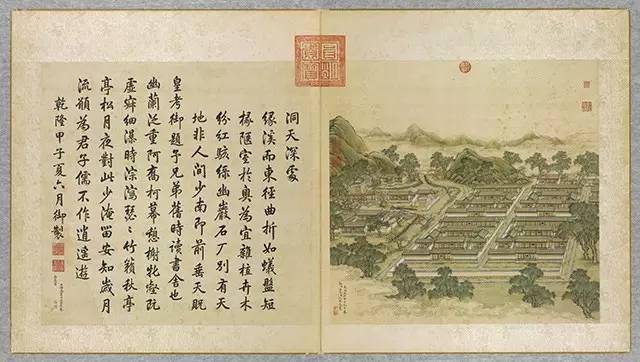 洞天深處
緣溪而東徑曲折如蟻盤短
椽陋室於奧為宜雜植卉木
紛紅駭綠幽巖石厂別有天
地非人間少南即前垂天貺
皇考御題予兄弟舊時讀書舍也
幽蘭泛重阿喬柯幕憩榭牝壑既
虛寂細瀑時淙瀉瑟〻竹籟秋亭
亭松月夜對此少淹留安知歲月
流願為君子儒不作逍遙遊
乾隆甲子夏六月御製